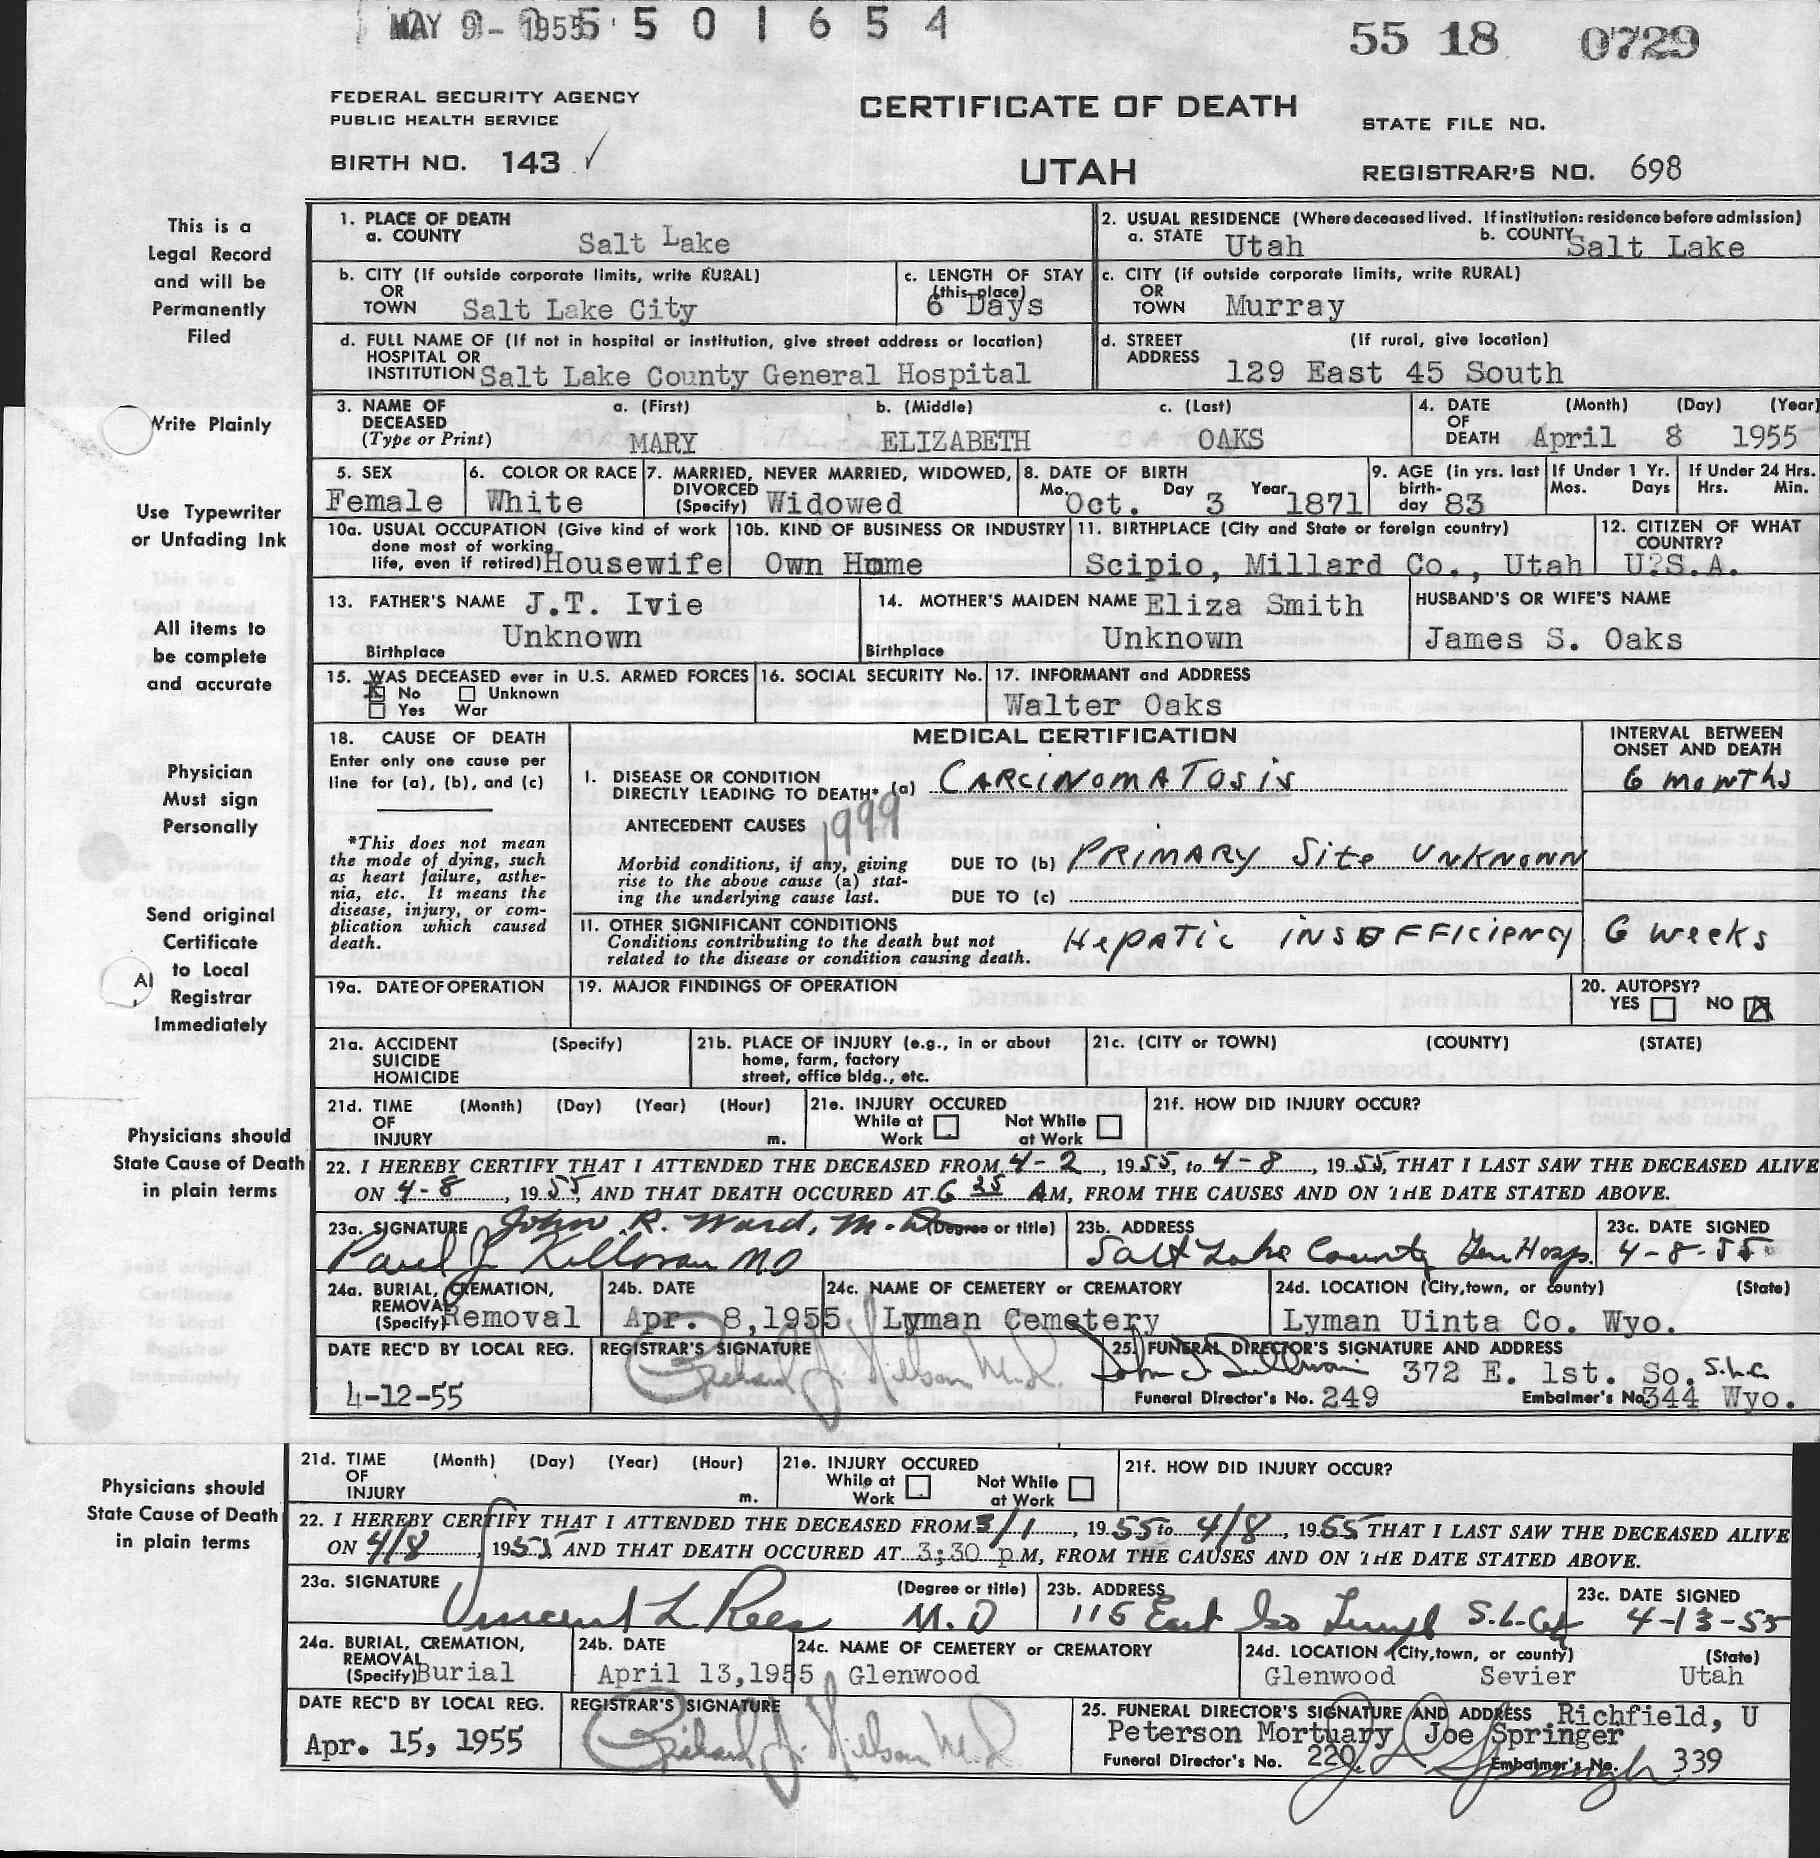 MAY 9 - 1955 5 5 0 1 6 5 4
55 18 0729
FEDERAL SECURITY AGENCY
PUBLIC HEALTH SERVICE
BIRTH NO. 143 ✓
CERTIFICATE OF DEATH
UTAH
STATE FILE NO.
REGISTRAR'S NO. 698
This is a
Legal Record
and will be
Permanently
Filed
Write Plainly
Use Typewriter
or Unfading Ink
All items to
be complete
and accurate
Physician
Must sign
Personally
Send original
Certificate
to Local
Registrar
Immediately
Physicians should
State Cause of Death
in plain terms
1. PLACE OF DEATH
a. COUNTY Salt Lake
2. USUAL RESIDENCE (Where deceased lived. If institution: residence before admission)
a. STATE Utah b. COUNTY Salt Lake
b. CITY (If outside corporate limits, write RURAL)
OR
TOWN Salt Lake City
c. LENGTH OF STAY
(this place)
6 Days
c. CITY (if outside corporate limits, write RURAL)
OR
TOWN Murray
d. FULL NAME OF (If not in hospital or institution, give street address or location)
HOSPITAL OR
INSTITUTION Salt Lake County General Hospital
d. STREET (If rural, give location)
ADDRESS
129 East 45 South
3. NAME OF a. (First) b. (Middle) c. (Last)
DECEASED
(Type or Print) MARY ELIZABETH OAKS
4. DATE (Month) (Day) (Year)
OF
DEATH April 8 1955
5. SEX
Female
6. COLOR OR RACE
White
7. MARRIED, NEVER MARRIED, WIDOWED,
DIVORCED
(Specify) Widowed
8. DATE OF BIRTH
Mo. Oct. Day 3 Year 1871
9. AGE (in yrs. last
birth-
day 83
If Under 1 Yr.
Mos. Days
If Under 24 Hrs.
Hrs. Min.
10a. USUAL OCCUPATION (Give kind of work
done most of working
life, even if retired) Housewife
10b. KIND OF BUSINESS OR INDUSTRY
Own Home
11. BIRTHPLACE (City and State or foreign country)
Scipio, Millard Co., Utah
12. CITIZEN OF WHAT
COUNTRY?
U?S.A.
13. FATHER'S NAME J.T. Ivie
Birthplace Unknown
14. MOTHER'S MAIDEN NAME Eliza Smith
Birthplace Unknown
HUSBAND'S OR WIFE'S NAME
James S. Oaks
15. WAS DECEASED ever in U.S. ARMED FORCES
No Unknown
Yes War
16. SOCIAL SECURITY No.
17. INFORMANT and ADDRESS
Walter Oaks
18. CAUSE OF DEATH
Enter only one cause per
line for (a), (b), and (c)
*This does not mean
the mode of dying, such
as heart failure, asthe-
nia, etc. It means the
disease, injury, or com-
plication which caused
death.
MEDICAL CERTIFICATION
INTERVAL BETWEEN
ONSET AND DEATH
I. DISEASE OR CONDITION
DIRECTLY LEADING TO DEATH* (a) CARCINOMATOSIS 6 months
ANTECEDENT CAUSES 1999
Morbid conditions, if any, giving
rise to the above cause (a) stat-
ing the underlying cause last.
DUE TO (b) PRIMARY Site UNKNOWN
DUE TO (c)
11. OTHER SIGNIFICANT CONDITIONS
Conditions contributing to the death but not
related to the disease or condition causing death.
Hepatic insufficiency 6 weeks
19a. DATE OF OPERATION
19. MAJOR FINDINGS OF OPERATION
20. AUTOPSY?
YES NO
21a. ACCIDENT (Specify)
SUICIDE
HOMICIDE
21b. PLACE OF INJURY (e.g., in or about
home, farm, factory
street, office bldg., etc.
21c. (CITY or TOWN) (COUNTY) (STATE)
21d. TIME (Month) (Day) (Year) (Hour)
OF
INJURY m.
21e. INJURY OCCURED
While at Not While
Work at Work
21f. HOW DID INJURY OCCUR?
22. I HEREBY CERTIFY THAT I ATTENDED THE DECEASED FROM 4-2, 1955, to 4-8, 1955, THAT I LAST SAW THE DECEASED ALIVE
ON 4-8, 1955, AND THAT DEATH OCCURED AT 6 25 AM, FROM THE CAUSES AND ON THE DATE STATED ABOVE.
23a. SIGNATURE John R. Ward, M.D. (Degree or title)
Paul J. Killoran MD
23b. ADDRESS
Salt Lake County Gen Hosp.
23c. DATE SIGNED
4-8-55
24a. BURIAL, CREMATION,
REMOVAL
(Specify) Removal
24b. DATE
Apr. 8,1955
24c. NAME OF CEMETERY or CREMATORY
Lyman Cemetery
24d. LOCATION (City, town, or county) (State)
Lyman Uinta Co. Wyo.
DATE REC'D BY LOCAL REG.
4-12-55
REGISTRAR'S SIGNATURE
Richard J. Nelson M.D.
25. FUNERAL DIRECTOR'S SIGNATURE AND ADDRESS
John J. Sullivan 372 E. 1st. So. S.L.C.
Funeral Director's No. 249 Embalmer's No. 344 Wyo.
Physicians should
State Cause of Death
in plain terms
21d. TIME (Month) (Day) (Year) (Hour)
OF
INJURY m.
21e. INJURY OCCURED
While at Not While
Work at Work
21f. HOW DID INJURY OCCUR?
22. I HEREBY CERTIFY THAT I ATTENDED THE DECEASED FROM 3/1, 1955 to 4/8, 1955 THAT I LAST SAW THE DECEASED ALIVE
ON 4/8, 1955, AND THAT DEATH OCCURED AT 3:30 p M, FROM THE CAUSES AND ON THE DATE STATED ABOVE.
23a. SIGNATURE (Degree or title)
Vincent L Rees M.D
23b. ADDRESS
115 East So Templ S.L. City
23c. DATE SIGNED
4-13-55
24a. BURIAL, CREMATION,
REMOVAL
(Specify) Burial
24b. DATE
April 13,1955
24c. NAME OF CEMETERY or CREMATORY
Glenwood
24d. LOCATION (City, town, or county) (State)
Glenwood Sevier Utah
DATE REC'D BY LOCAL REG.
Apr. 15, 1955
REGISTRAR'S SIGNATURE
Richard J. Nelson M.D.
25. FUNERAL DIRECTOR'S SIGNATURE AND ADDRESS Richfield, U
Peterson Mortuary Joe Springer
Funeral Director's No. 220 Embalmer's No. 339